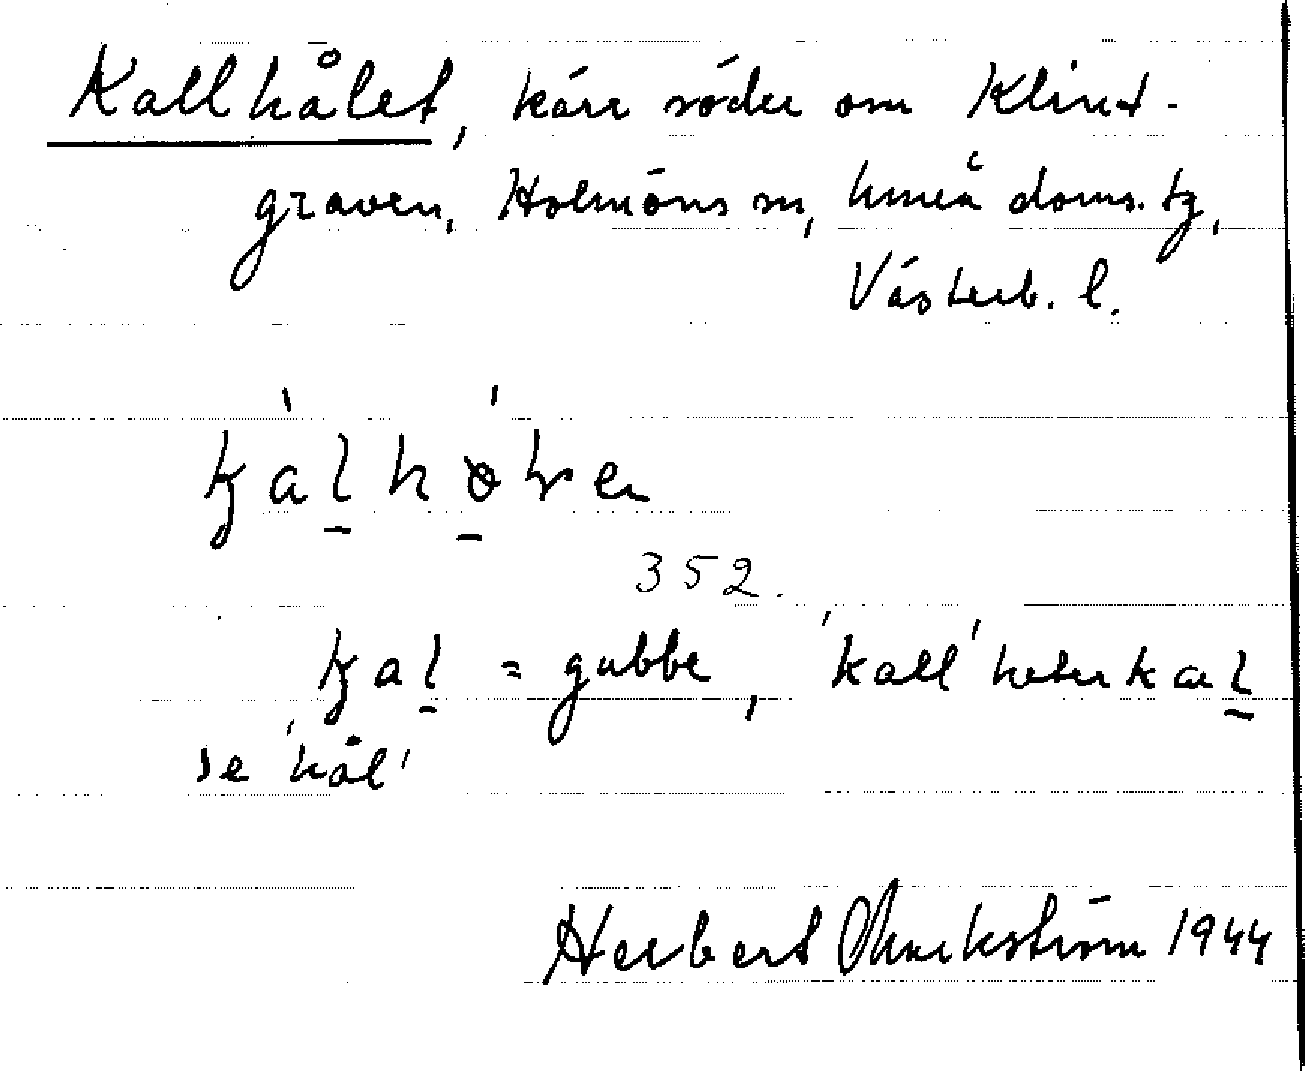 Kallhålet, kärr söder om Klint-
graven, Holmöns sn, Umeå doms. tg,
Västerb. l.
kalh
352.
kal = gubbe, 'kall' heter kal
se 'hål'
Herbert 1944